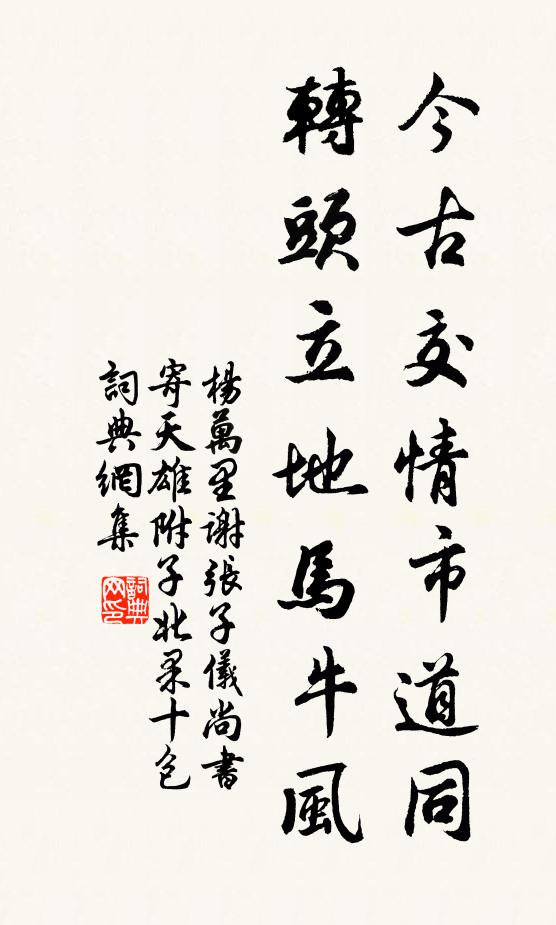 今古交情市道同
轉頭立地馬牛風
楊萬里謝張子儀尚書
寄天雄附子北果十包
詞典網集
詞典
网印